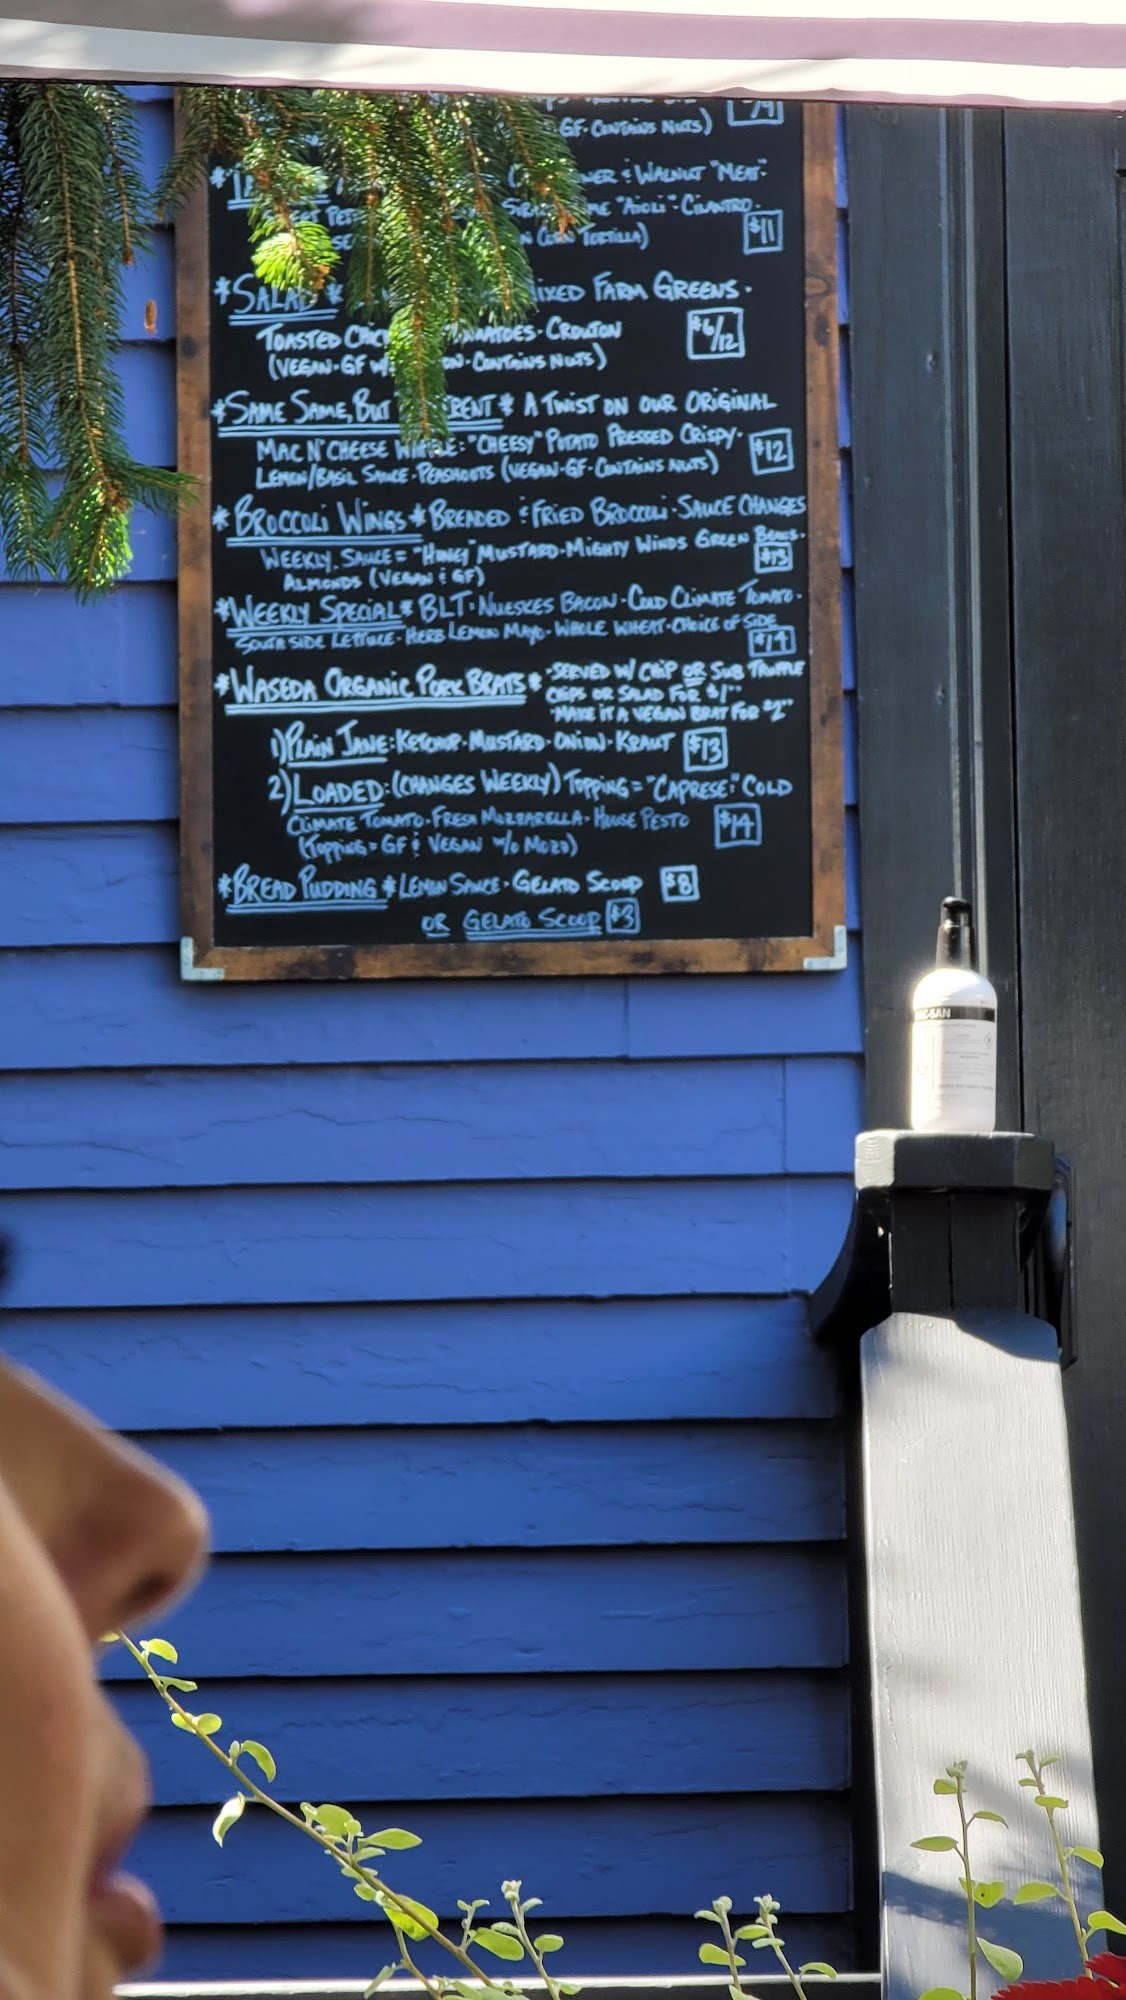 GF. CONTAINS NUTS)
& WALNUT "MEAT".
"AIOLI". CILANTRO.
CORN TORTILLA) $11
*SALAD* MIXED FARM GREENS.
TOASTED TOMATOES. CROUTON $6/12
(VEGAN. GF CONTAINS NUTS)
*SAME SAME, BUT * A TWIST ON OUR ORIGINAL
MAC N' CHEESE WAFFLE: "CHEESY" POTATO PRESSED CRISPY. $12
LEMON/BASIL SAUCE. PEASHOOTS (VEGAN. GF. CONTAINS NUTS)
*BROCCOLI WINGS* BREADED & FRIED BROCCOLI. SAUCE CHANGES
WEEKLY. SAUCE = "HONEY" MUSTARD. MIGHTY WINDS GREEN BEANS. $13
ALMONDS (VEGAN & GF)
*WEEKLY SPECIAL* BLT: NUESKES BACON. COLD CLIMATE TOMATO.
SOUTH SIDE LETTUCE. HERB LEMON MAYO. WHOLE WHEAT. CHOICE OF SIDE $14
*WASEDA ORGANIC PORK BRATS* .SERVED W/ CHIP OR SUB TRUFFLE
CHIPS OR SALAD FOR $1"
"MAKE IT A VEGAN BRAT FOR $2"
1) PLAIN JANE: KETCHUP. MUSTARD. ONION. KRAUT $13
2) LOADED: (CHANGES WEEKLY) TOPPING = "CAPRESE": COLD
CLIMATE TOMATO. FRESH MOZZARELLA. HOUSE PESTO $14
(TOPPING = GF & VEGAN W/O MOZZ)
*BREAD PUDDING* LEMON SAUCE. GELATO SCOOP $8
OR GELATO SCOOP $3